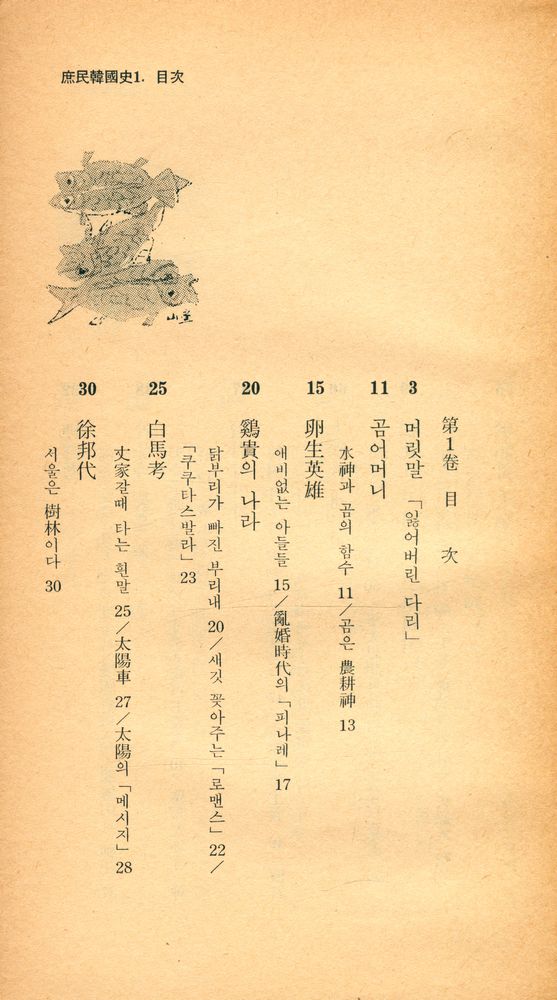 庶民韓國史1. 目次
山堂
第1卷 目 次
3 머릿말 「잃어버린 다리」
11 곰어머니
水神과 곰의 함수 11/곰은 農耕神 13
15 卵生英雄
애비없는 아들들 15/亂婚時代의 「피나레」 17
20 鷄貴의 나라
닭부리가 빠진 부리내 20/새깃 꽂아주는 「로맨스」 22/
「쿠쿠타스발라」 23
25 白馬考
丈家갈때 타는 흰말 25/太陽車 27/太陽의 「메시지」 28
30 徐邦代
서울은 樹林이다 30